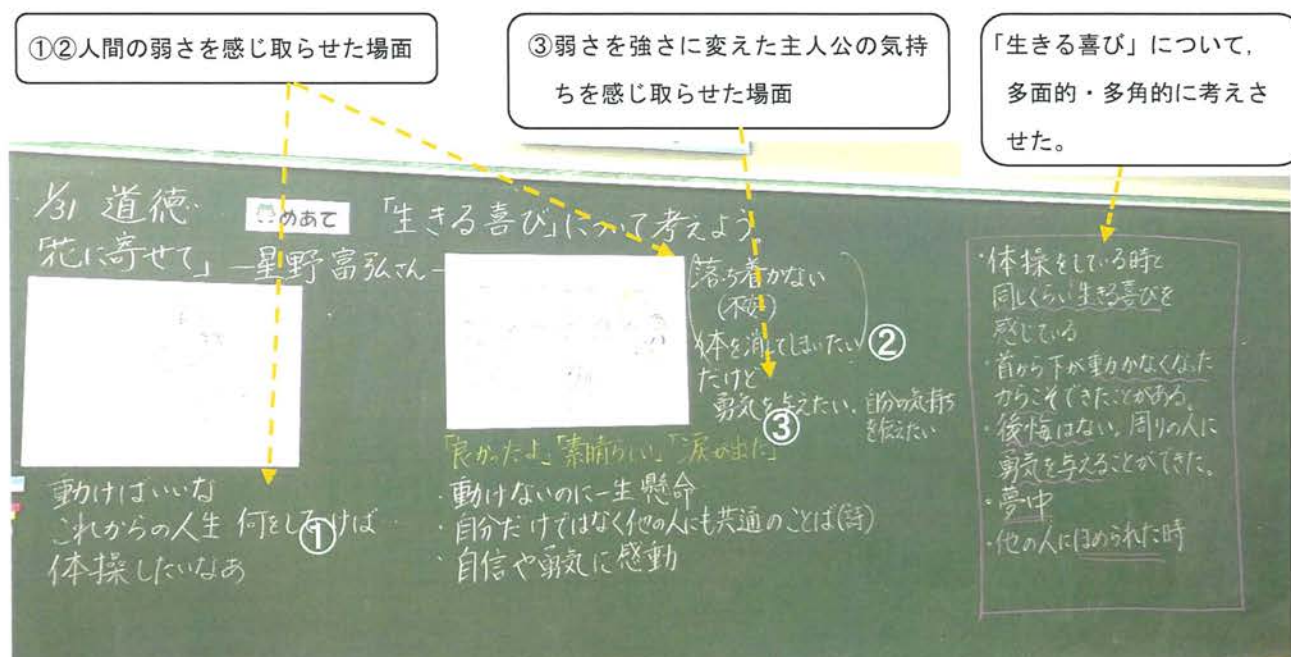 ①②人間の弱さを感じ取らせた場面
③弱さを強さに変えた主人公の気持
ちを感じ取らせた場面
「生きる喜び」について,
多面的・多角的に考えさ
せた。
1/31 道徳
めあて
「生きる喜び」について考えよう。
「花に寄せて」―星野富弘さん―
動ければいいな
これからの人生 何をして けば
①
体操したいなあ
落ち着かない
体を消してしまいたい
②
だけど
勇気を与えたい.
自分の気持ち
を伝えたい
③
「良かったよ」「素晴らしい」「涙が出た」
・動けないのに一生懸命
・自分だけではなく他の人にも共通のことば(詩)
・自信や勇気に感動
・体操をしている時と
同じくらい生きる喜びを
感じている
・首から下が動かなくなった
からこそできたことがある。
・後悔はない。周りの人に
勇気を与えることができた。
・夢中
・他の人にほめられた時